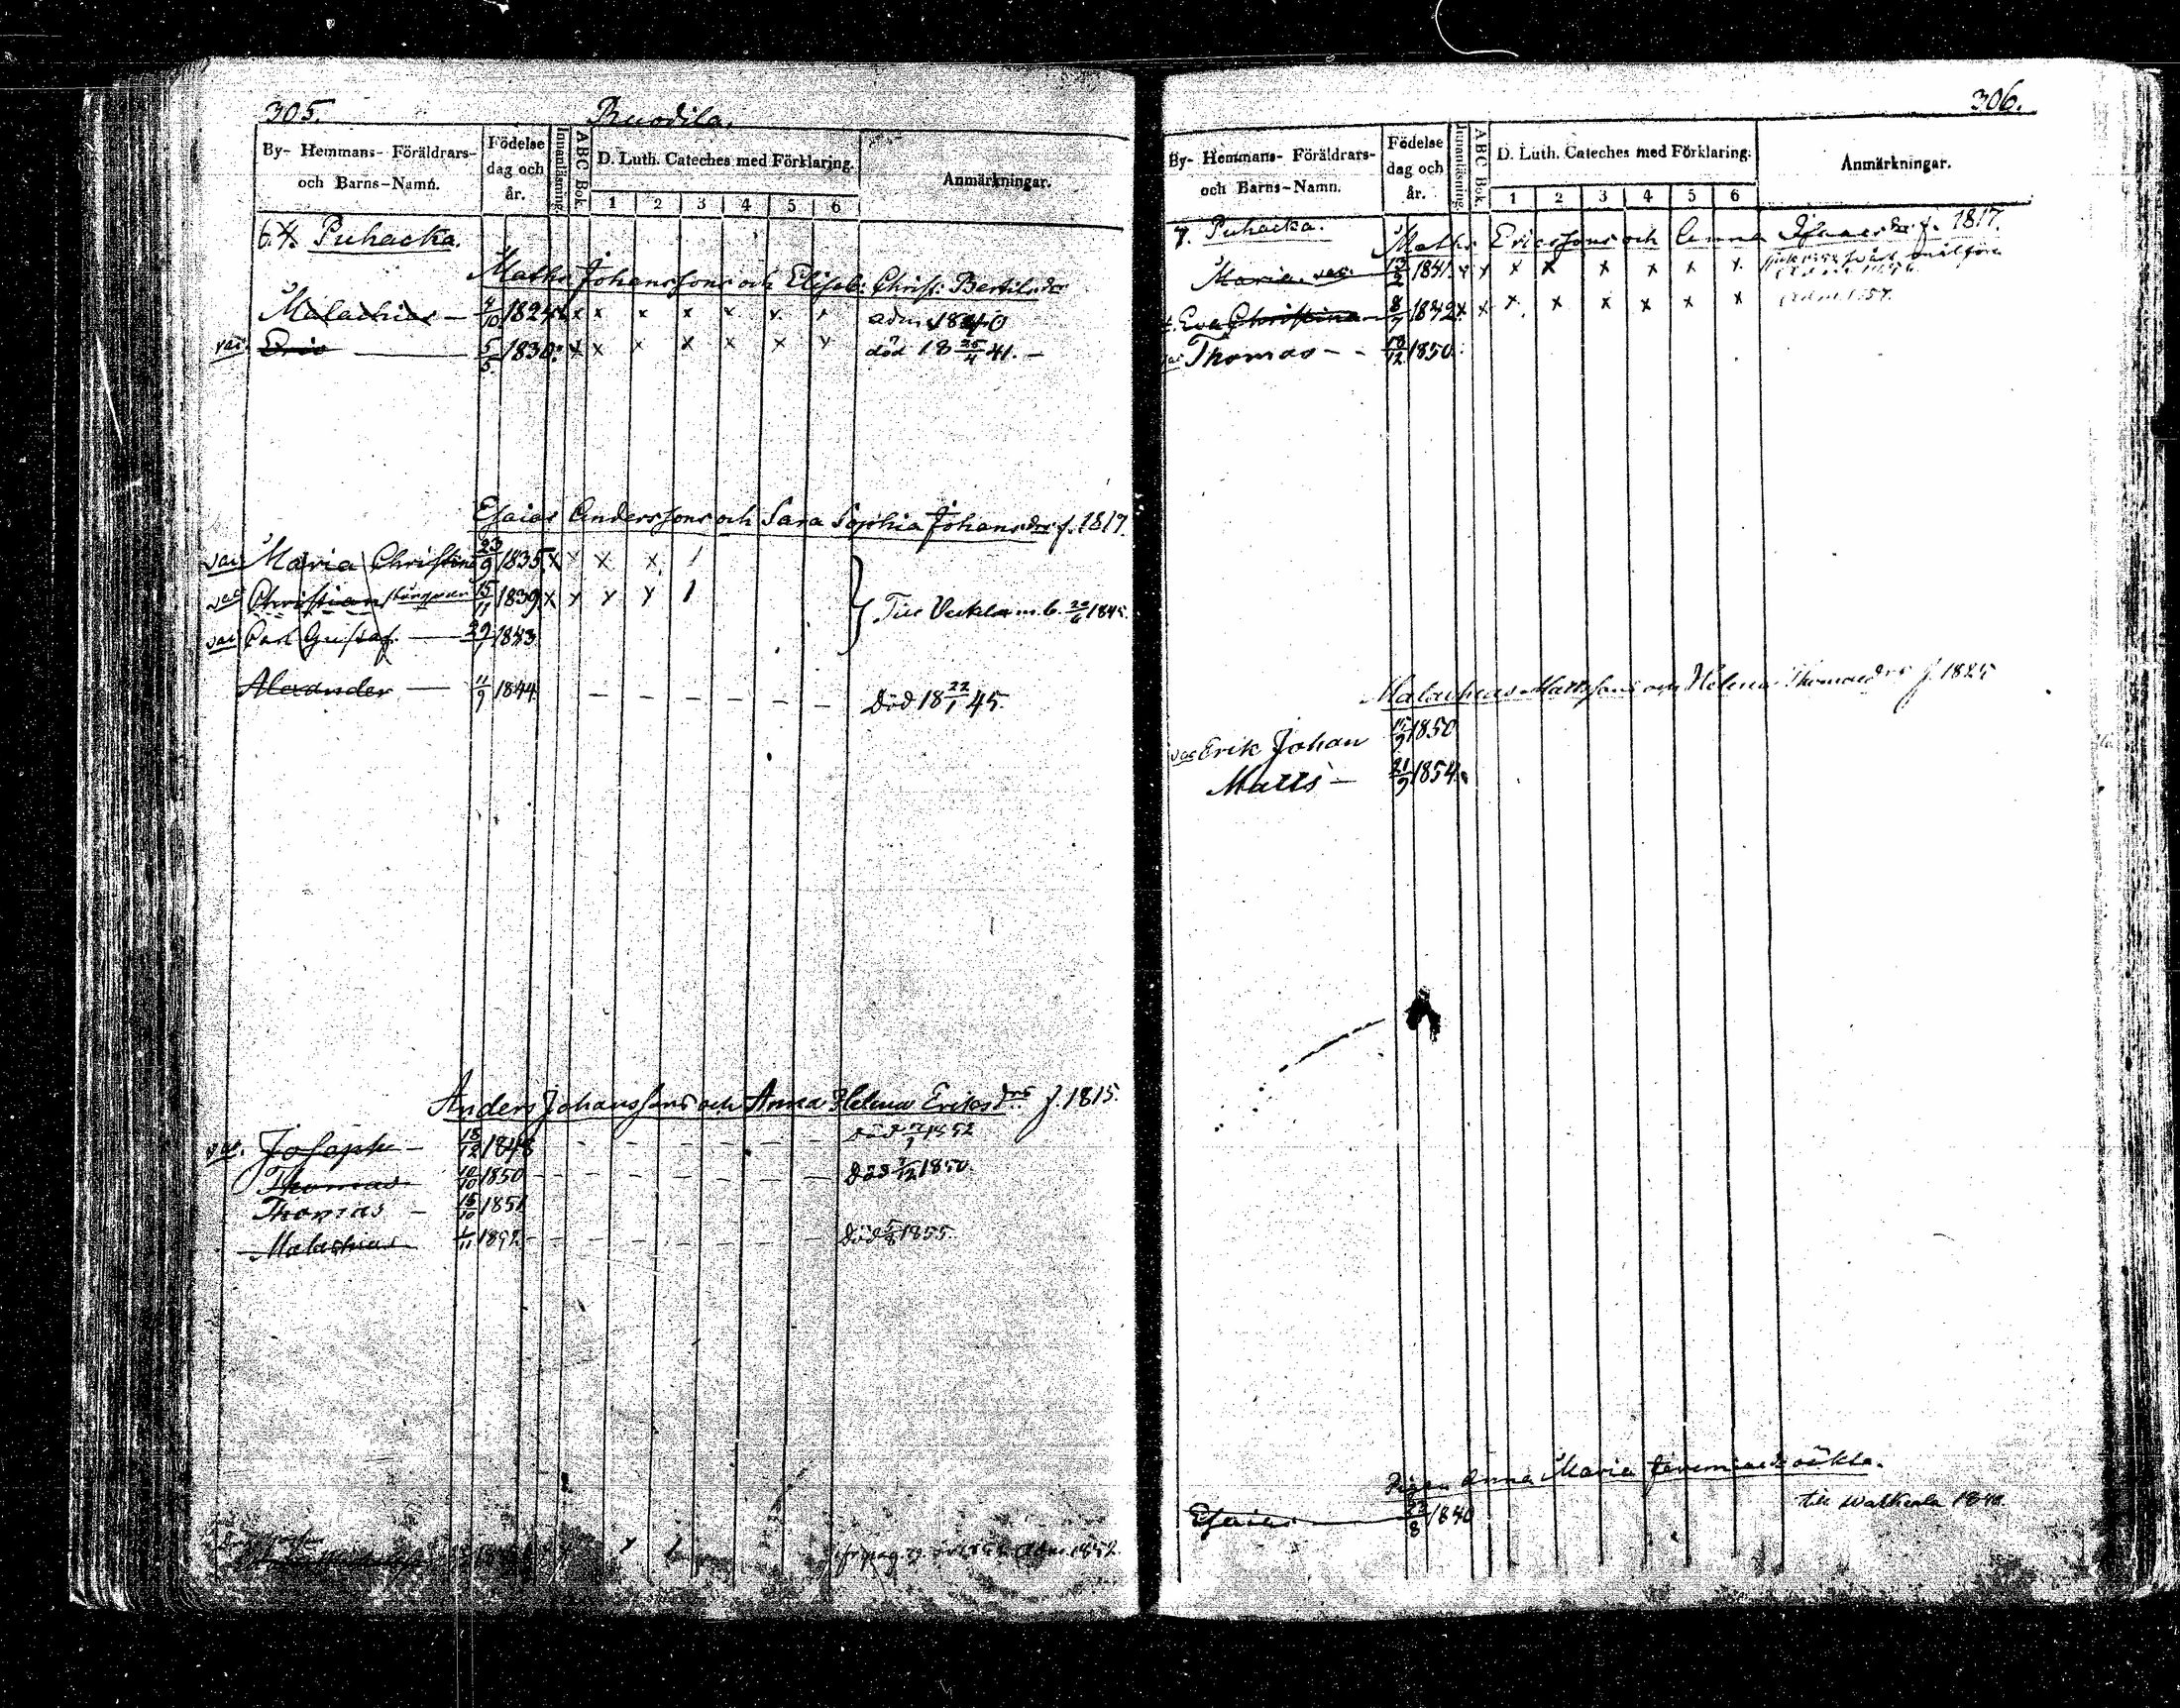 305.
Ruodila.
By- Hemmans- Föräldrars- och Barns-Namn.
Födelse dag och år.
Innanläsning.
ABC Bok.
D. Luth. Cateches med Förklaring.
1 2 3 4 5 6
Anmärkningar.
6. 4. Puhacka.
Matts Johanssons och Elisab: Christ: Bertilsdr
Malachias — 4/10 1824 x x x x x x x adm 1840
vac. Eric — 5/5 1830 x x x x x x x död 18 25/4 41. —
Esaias Anderssons och Sara Sophia Johansdrs f. 1817.
vac Maria Christina 23/9 1835 x x x x 1
vac Christian 15/11 1839 x x x x 1
Till m.b. 1845.
vac Carl Gustaf — 1843
Alexander — 11/9 1844 — — — — — — Död 18 22/1 45.
Anders Johanssons och Anna Helena Eriksdrs f. 1815.
vac. Josaph — 18/12 1848 — — — — — — död 1852
Thomas 10/10 1850 — — — — — — död 1850.
Thomas — 15/10 1851
Malachias 1/11 — — — — — — Död 1855.
1852.
306.
By- Hemmans- Föräldrars- och Barns-Namn.
Födelse dag och år.
Innanläsning.
ABC Bok.
D. Luth. Cateches med Förklaring.
1 2 3 4 5 6
Anmärkningar.
7. Puhacka.
Matts Ericssons och Anna f. 1817.
Maria vac. 13/2 1841 x x x x x x x x
Eva Christina — 8/7 1842 x x x x x x x x
vac Thomas - - 1850
Malachias Mattssons och Helena Thomasdrs f. 1825
vac Erik Johan 15/9 1850
Matts — 21/9 1854
Pigan Anna Maria
Esaias — 22/8 1840 till Walkiala